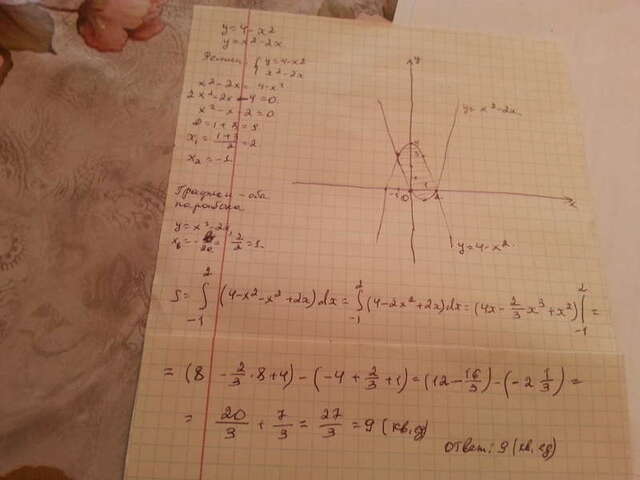 y=4-x²
y=x²-2x
Решим: { y=4-x²
x²-2x
x²-2x=4-x²
2x²-2x-4=0
x²-x-2=0
D=1+8=9
x₁=(1+3)/2=2
x₂=-1
Графики - оба
парабола
y=x²-2x,
x_b=-b/2a=2/2=1.
y
y=x²-2x
-1 0 1 2
x
y=4-x²
S=∫₋₁² (4-x²-x²+2x)dx=∫₋₁² (4-2x²+2x)dx=(4x-2/3x³+x²)|₋₁²=
=(8-2/3·8+4)-(-4+2/3+1)=(12-16/3)-(-2 1/3)=
=20/3+7/3=27/3=9(кв,ед)
Ответ: 9(кв,ед)